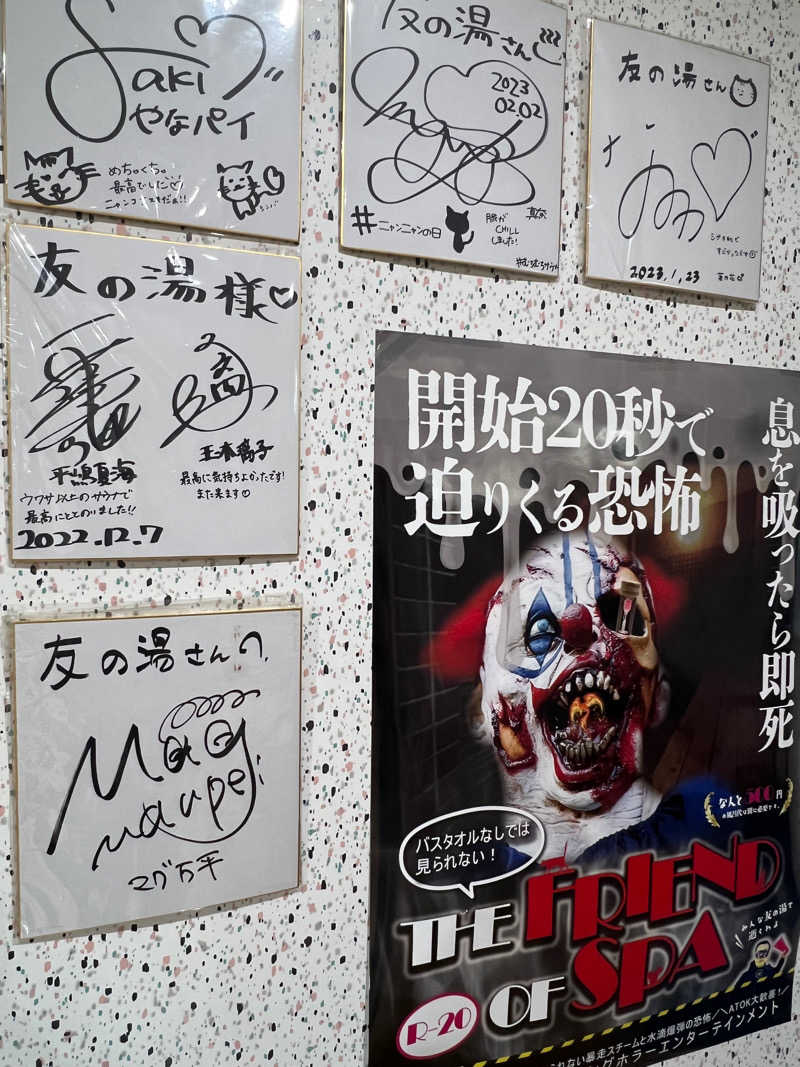 Saki
やなパイ
めちゃくちゃ
最高でした♡
友の湯さん
2023
02.02
#ニャンニャンの日
服が
CHILL
しました!
友の湯さん
2023.1.23
友の湯様♡
平嶋夏海
ウワサ以上のサウナで
最高にととのいました!!
2022.12.7
玉本璃子
最高に気持ちよかったです!
また来ます♡
友の湯さんへ
Mag
manpei
マグ万平
開始20秒で
迫りくる恐怖
息を吸ったら即死
なんと500円
バスタオルなしでは
見られない!
THE FRIEND
OF SPA
みんな友の湯で
逝くわよ
R-20
られない暴走スチームと水滴爆弾の恐怖/\ATOK大歓喜!/
グホラーエンターテインメント